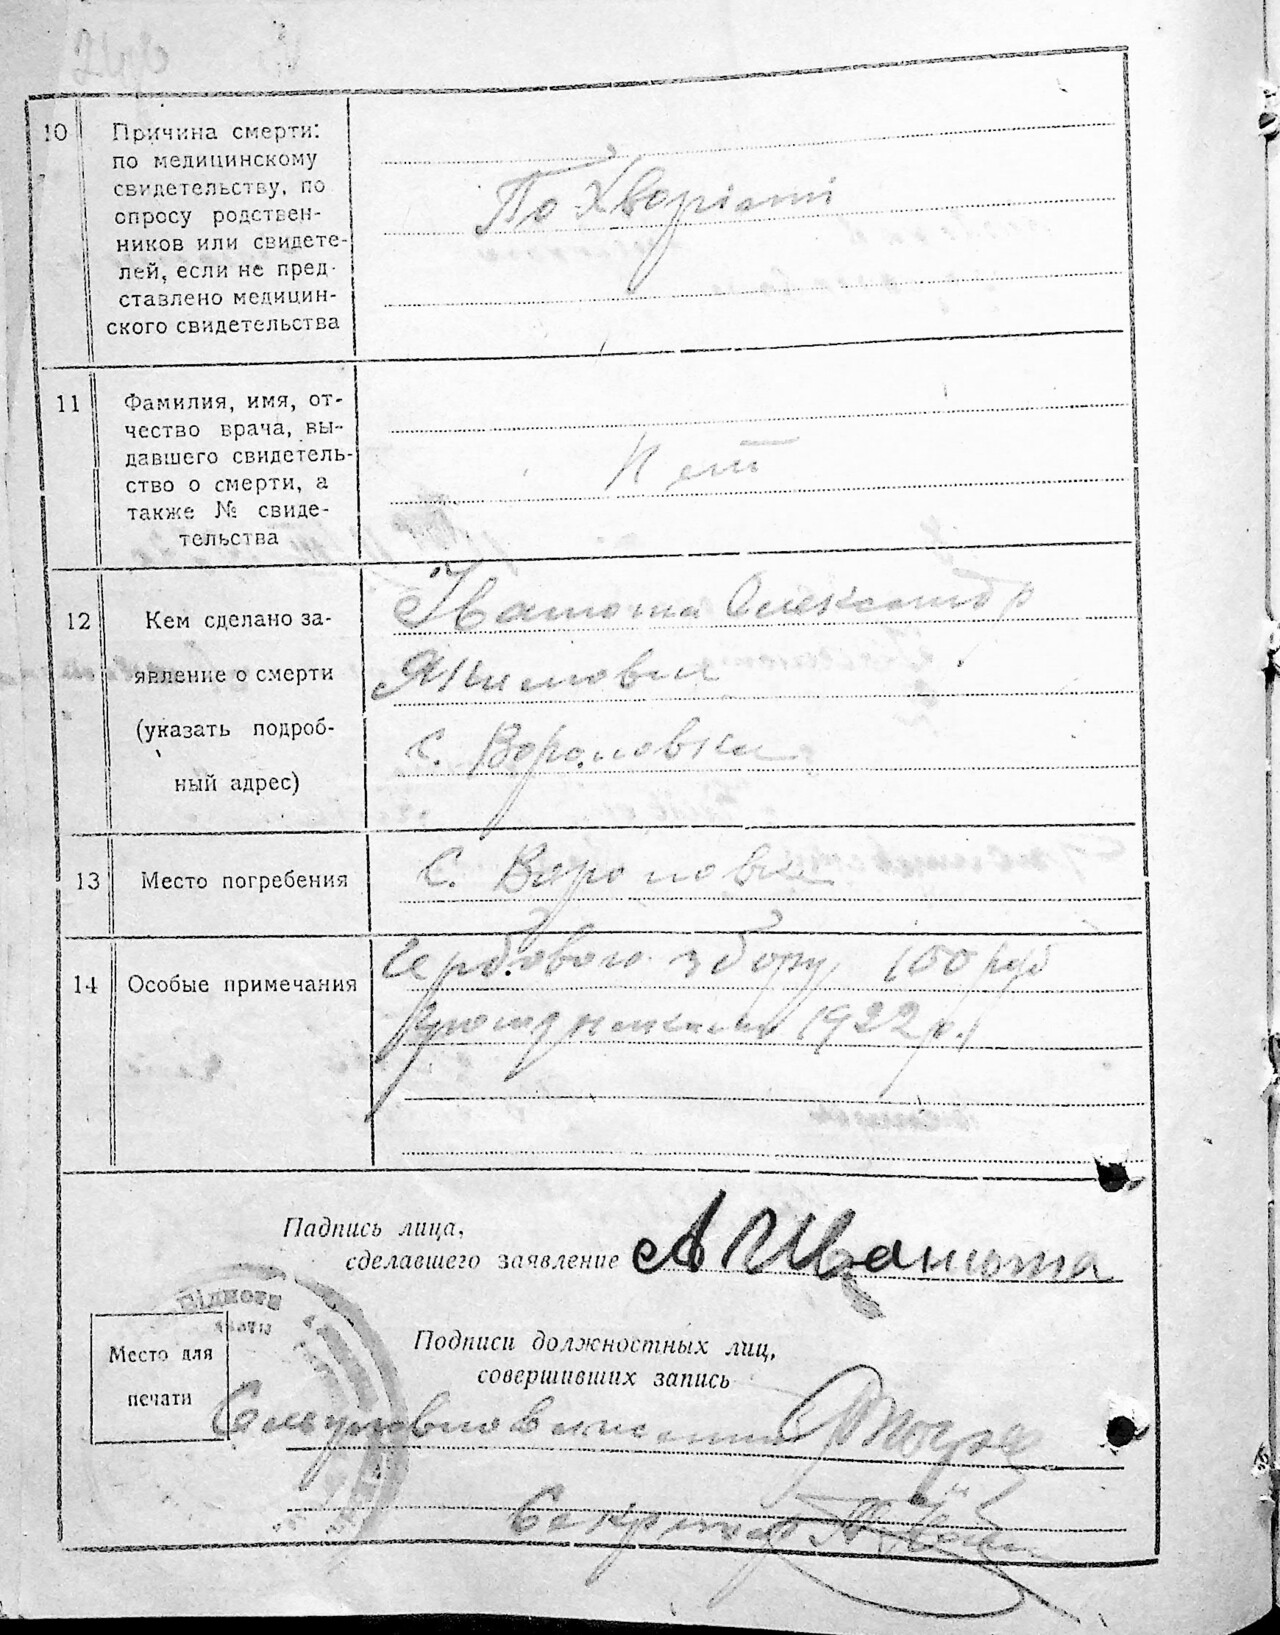 10
Причина смерти:
по медицинскому
свидетельству, по
опросу родствен-
ников или свидете-
лей, если не пред-
ставлено медицин-
ского свидетельства
По Хворіоті
11
Фамилия, имя, от-
чество врача, вы-
давшего свидетель-
ство о смерти, а
также № свиде-
тельства
Нет
12
Кем сделано за-
явление о смерти
(указать подроб-
ный адрес)
Ивашота Олександр
Якимович
с.
13
Место погребения
С.
14
Особые примечания
Гербового збору 150 руб
1922 р.
Падпись лица,
сделавшего заявление
А Ивашота
Место для
печати
Подписи должностных лиц,
совершивших запись
Секретар